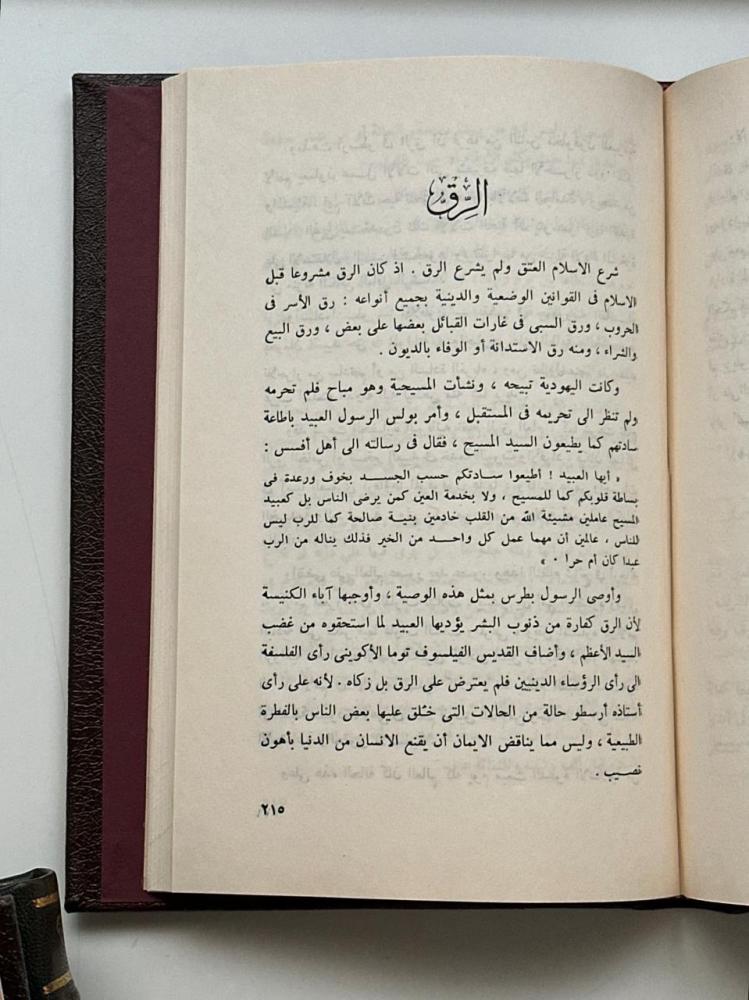 الرِّقُّ
شرع الاسلام العتق ولم يشرع الرق . اذ كان الرق مشروعا قبل
الاسلام فى القوانين الوضعية والدينية بجميع أنواعه : رق الأسر فى
الحروب ، ورق السبى فى غارات القبائل بعضها على بعض ، ورق البيع
والشراء ، ومنه رق الاستدانة أو الوفاء بالديون .
وكانت اليهودية تبيحه ، ونشأت المسيحية وهو مباح فلم تحرمه
ولم تنظر الى تحريمه فى المستقبل ، وأمر بولس الرسول العبيد باطاعة
سادتهم كما يطيعون السيد المسيح ، فقال فى رسالته الى أهل أفسس :
« أيها العبيد ! أطيعوا سادتكم حسب الجسد بخوف ورعدة فى
بساطة قلوبكم كما للمسيح ، ولا بخدمة العين كمن يرضى الناس بل كعبيد
المسيح عاملين مشيئة الله من القلب خادمين بنية صالحة كما للرب ليس
للناس ، عالمين أن مهما عمل كل واحد من الخير فذلك يناله من الرب
عبدا كان أم حرا . »
وأوصى الرسول بطرس بمثل هذه الوصية ، وأوجبها آباء الكنيسة
لأن الرق كفارة من ذنوب البشر يؤديها العبيد لما استحقوه من غضب
السيد الأعظم ، وأضاف القديس الفيلسوف توما الأكوينى رأى الفلسفة
الى رأى الرؤساء الدينيين فلم يعترض على الرق بل زكاه . لأنه على رأى
أستاذه أرسطو حالة من الحالات التى خُلق عليها بعض الناس بالفطرة
الطبيعية ، وليس مما يناقض الايمان أن يقنع الانسان من الدنيا بأهون
نصيب .
٢١٥